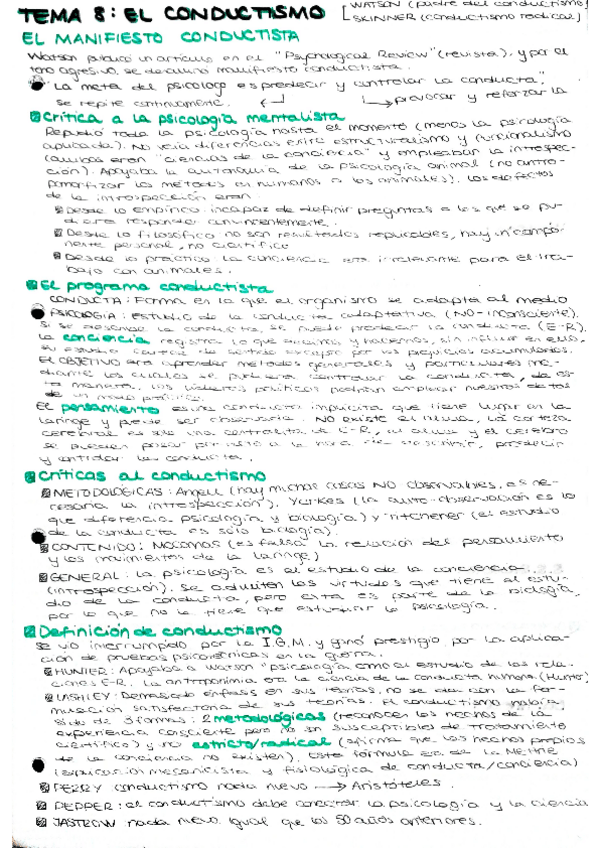 TEMA 8: EL CONDUCTISMO
[WATSON (padre del conductismo)
SKINNER (conductismo radical)
EL MANIFIESTO CONDUCTISTA
Watson publicó un artículo en el "Psychological Review" (revista), y por el
tono agresivo, se denominó manifiesto conductista.
"La meta del psicólogo es predecir y controlar la conducta",
se repite continuamente. provocar y reforzar la
Crítica a la psicología mentalista
Repudió toda la psicología hasta el momento (menos la psicología
aplicada). No veía diferencias entre estructuralismo y funcionalismo
(ambos eran "ciencias de la conciencia" y empleaban la introspec-
ción). Apoyaba la autonomía de la psicología animal (no antro-
pomorfizar los métodos en humanos a los animales). Los defectos
de la introspección eran:
Desde lo empírico: incapaz de definir preguntas a las que se pu-
diera responder convincentemente.
Desde lo filosófico no son resultados replicables, hay 1 compo-
nente personal, no científico
Desde lo práctico: la conciencia era irrelevante para el tra-
bajo con animales.
El programa conductista
CONDUCTA: Forma en la que el organismo se adapta al medio
PSICOLOGÍA: estudio de la conducta adaptativa (NO-inconsciente).
Si se la conducta, se puede predecir la conducta (E-R).
La conciencia registra lo que decimos y hacemos, sin influir en ello,
su estudio carece de sentido excepto por los prejuicios acumulados.
El OBJETIVO era aprender métodos generales y particulares me-
diante los cuales se pudiera controlar la conducta, de es-
ta manera, los líderes políticos podrían emplear nuestros datos
de un modo práctico.
El pensamiento es una conducta implícita que tiene lugar en la
laringe y puede ser observable. NO existe el alma, la corteza
cerebral es sólo una centralita de E-R, el alma y el cerebro
se pueden pasar por alto a la hora de describir, predecir
y controlar la conducta.
Críticas al conductismo
METODOLÓGICAS: Angell (hay muchas cosas NO observables, es ne-
cesaria la introspección), Yerkes (la auto-observación es lo
que diferencia psicología y biología) y Titchener (el estudio
de la conducta es sólo biología).
CONTENIDO: McComas (es falsa la relación del pensamiento
y los movimientos de la laringe)
GENERAL: la psicología es el estudio de la conciencia
(introspección), se admiten las virtudes que tiene el estu-
dio de la conducta, pero ésta es parte de la biología,
por lo que no le tiene que estudiar la psicología.
Definición de conductismo
Se vio interrumpido por la I.G.M. y ganó prestigio por la aplica-
ción de pruebas psicométricas en la guerra.
HUNTER: Apoyaba a Watson "psicología como el estudio de las rela-
ciones E-R. La antroponimia era la ciencia de la conducta humana. (Hunter)
LASHLEY: Demasiado énfasis en sus teorías, no se dan con la for-
mulación satisfactoria de sus teorías. El conductismo había
sido de 3 formas: 2 metodológicas (reconocen los hechos de la
experiencia consciente pero no son susceptibles de tratamiento
científico) y no estricto/radical (afirma que los hechos propios
de la conciencia no existen). Esta fórmula era de La Mettrie
(explicación mecanicista y fisiológica de conducta/conciencia)
PERRY conductismo nada nuevo → Aristóteles.
PEPPER: el conductismo debe conectar la psicología y la ciencia
JASTROW nada nuevo, igual que los 50 años anteriores.